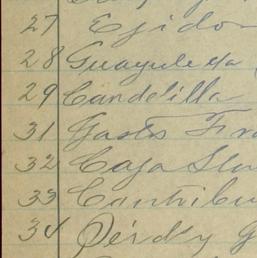 27 Ejidos
28 Guayule da
29 Candelilla
31 Gastos Fra
32 Caja
33 Contribu
34 Pérd y G